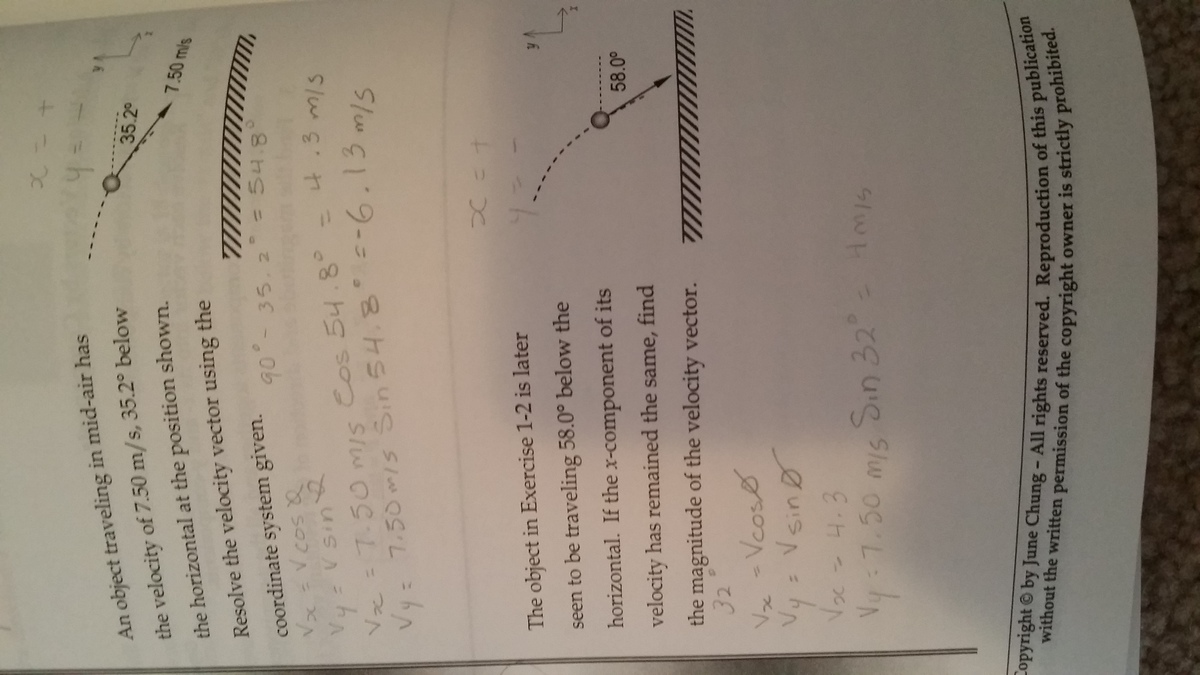 x = +
y = -
An object traveling in mid-air has
the velocity of 7.50 m/s, 35.2° below
the horizontal at the position shown.
Resolve the velocity vector using the
coordinate system given.
35.2°
7.50 m/s
y
x
90° - 35.2° = 54.8°
Vx = V cos
Vy = V sin
Vx = 7.50 m/s Cos 54.8° = 4.3 m/s
Vy = 7.50 m/s Sin 54.8° = -6.13 m/s
x = +
y = -
The object in Exercise 1-2 is later
seen to be traveling 58.0° below the
horizontal. If the x-component of its
velocity has remained the same, find
the magnitude of the velocity vector.
58.0°
y
x
32°
Vx = Vcosθ
Vy = V sinθ
Vx = 4.3
Vy = 7.50 m/s Sin 32° = 4 m/s
Copyright © by June Chung – All rights reserved. Reproduction of this publication
without the written permission of the copyright owner is strictly prohibited.